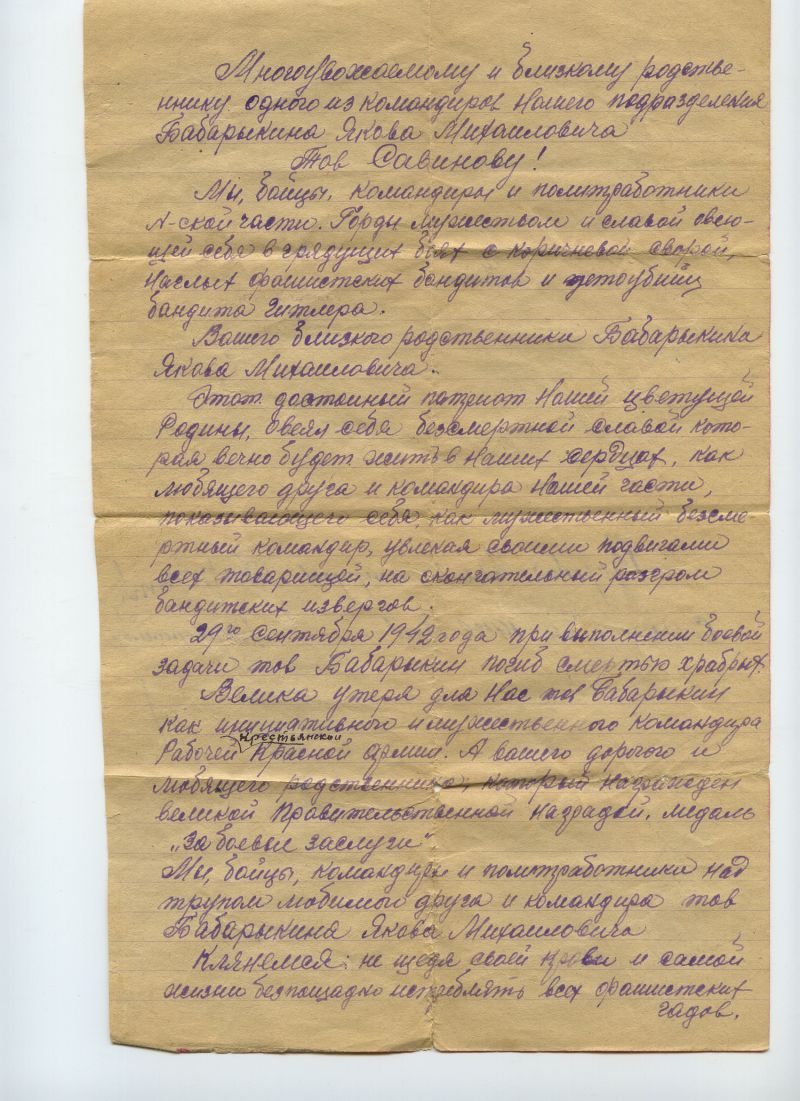 Многоуважаемому и близкому родстве-
ннику одного из командиров нашего подразделения
Бабарыкина Якова Михаиловича
Тов Савинову!
Мы, бойцы, командиры и политработники
N-ской части. Горды мужеством и славой овею-
щей себя в грядущих боях с коричневой сворой,
наглых фашистских бандитов и детоубийц
бандита Гитлера.
Вашего близкого родственники Бабарыкина
Якова Михаиловича.
Этот достойный патриот нашей цветущей
Родины, овеял себя безсмертной славой кото-
рая вечно будет жить в наших сердцах, как
любящего друга и командира нашей части,
показывающего себя, как мужественный безсме-
ртный командир, увлекая своими подвигами
всех товарищей, на окончательный розгром
бандитских извергов.
29го сентября 1942 года при выполнении боевой
задачи тов Бабарыкин погиб смертью храбрых.
Велика утеря для нас тов Бабарыкин
как инициативного и мужественного командира
Рабочей Крестьянской Красной армии. А вашего дорогого и
любящего родственника, который награжден
великой Правительственной наградой, медаль
„За боевые заслуги“
Мы, бойцы, командиры и политработники над
трупом любимого друга и командира тов
Бабарыкина Якова Михаиловича
Клянемся: не щедя своей крови и самой
жизни безпощадно истреблять всех фашистских
гадов.